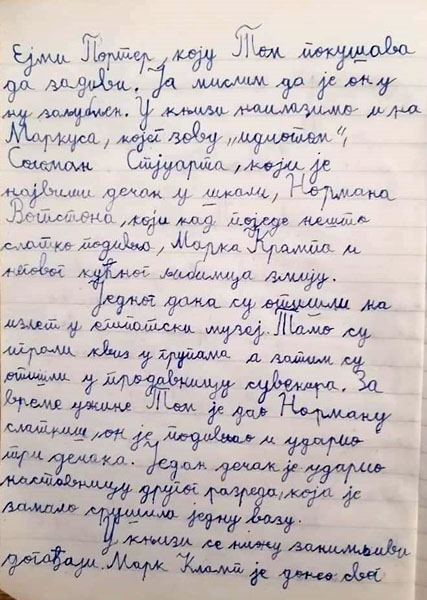 Ејми Портер, коју Том покушава
да задиви. Ја мислим да је он у
њу заљубљен. У књизи наилазимо и на
Маркуса, којег зову „идиотом“,
Соломан Стјуарта, који је
највиши дечак у школи, Нормана
Вотстона, који кад поједе нешто
слатко подивља, Марка Крампа и
његовог кућног љубимца змију.
Једног дана су отишли на
излет у египатски музеј. Тамо су
играли квиз у групама а затим су
отишли у продавницу сувенира. За
време ужине Том је дао Норману
слаткиш, он је подивљао и ударио
три дечака. Један дечак је ударио
наставницу другог разреда, која је
замало срушила једну вазу.
У књизи се нижу занимљиви
догађаји. Марк Кламп је донео свог